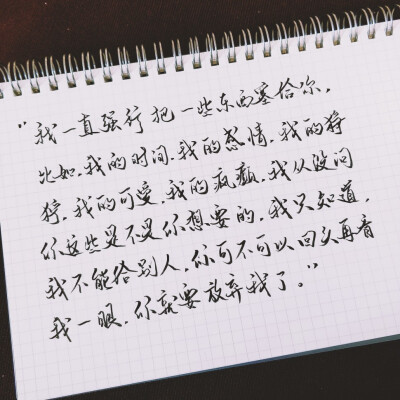 “我一直强行把一些东西塞给你，
比如，我的时间，我的感情，我的狰
狞，我的可爱，我的疯癫，我从没问
你这些是不是你想要的，我只知道，
我不能给别人，你可不可以回头再看
我一眼，你就要放弃我了。”